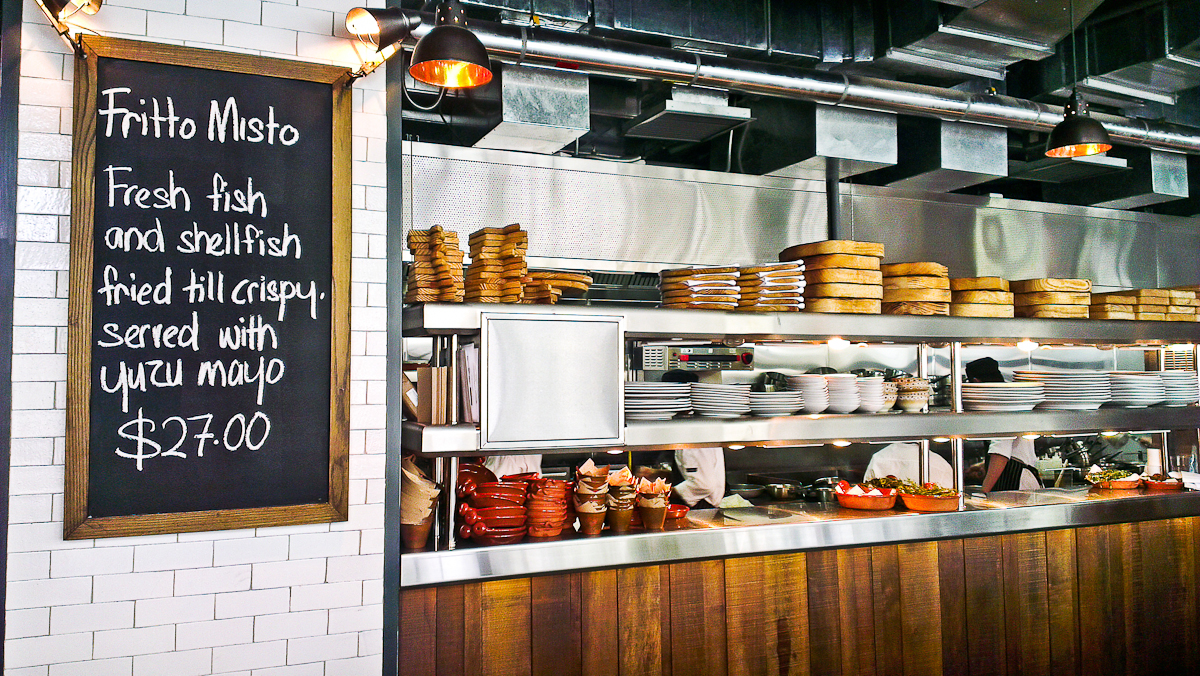 Fritto Misto
Fresh fish
and shellfish
fried till crispy.
served with
yuzu mayo
$27.00